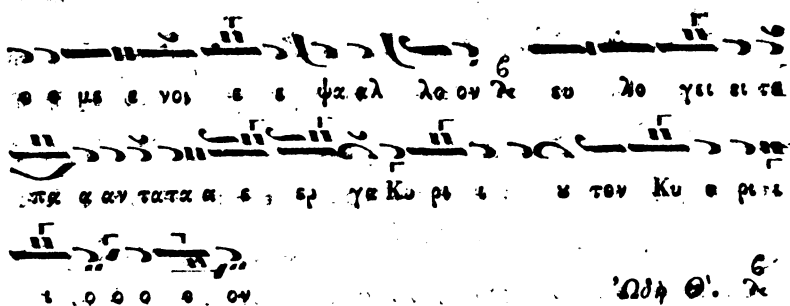 ο ο με ε νοι ε ε ψα αλ λο ον ευ λο γει ει τε
πα α αν τα τα α ε ερ γα Κυ ρι ι ου τον Κυ υ ρι ι
ι ο ο ο ο ον Ὠδὴ Θ'.